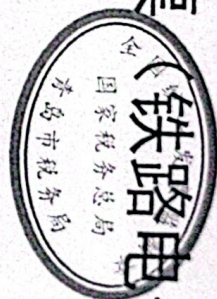 (铁路电
全
发
国家税务总局
青岛市税务局